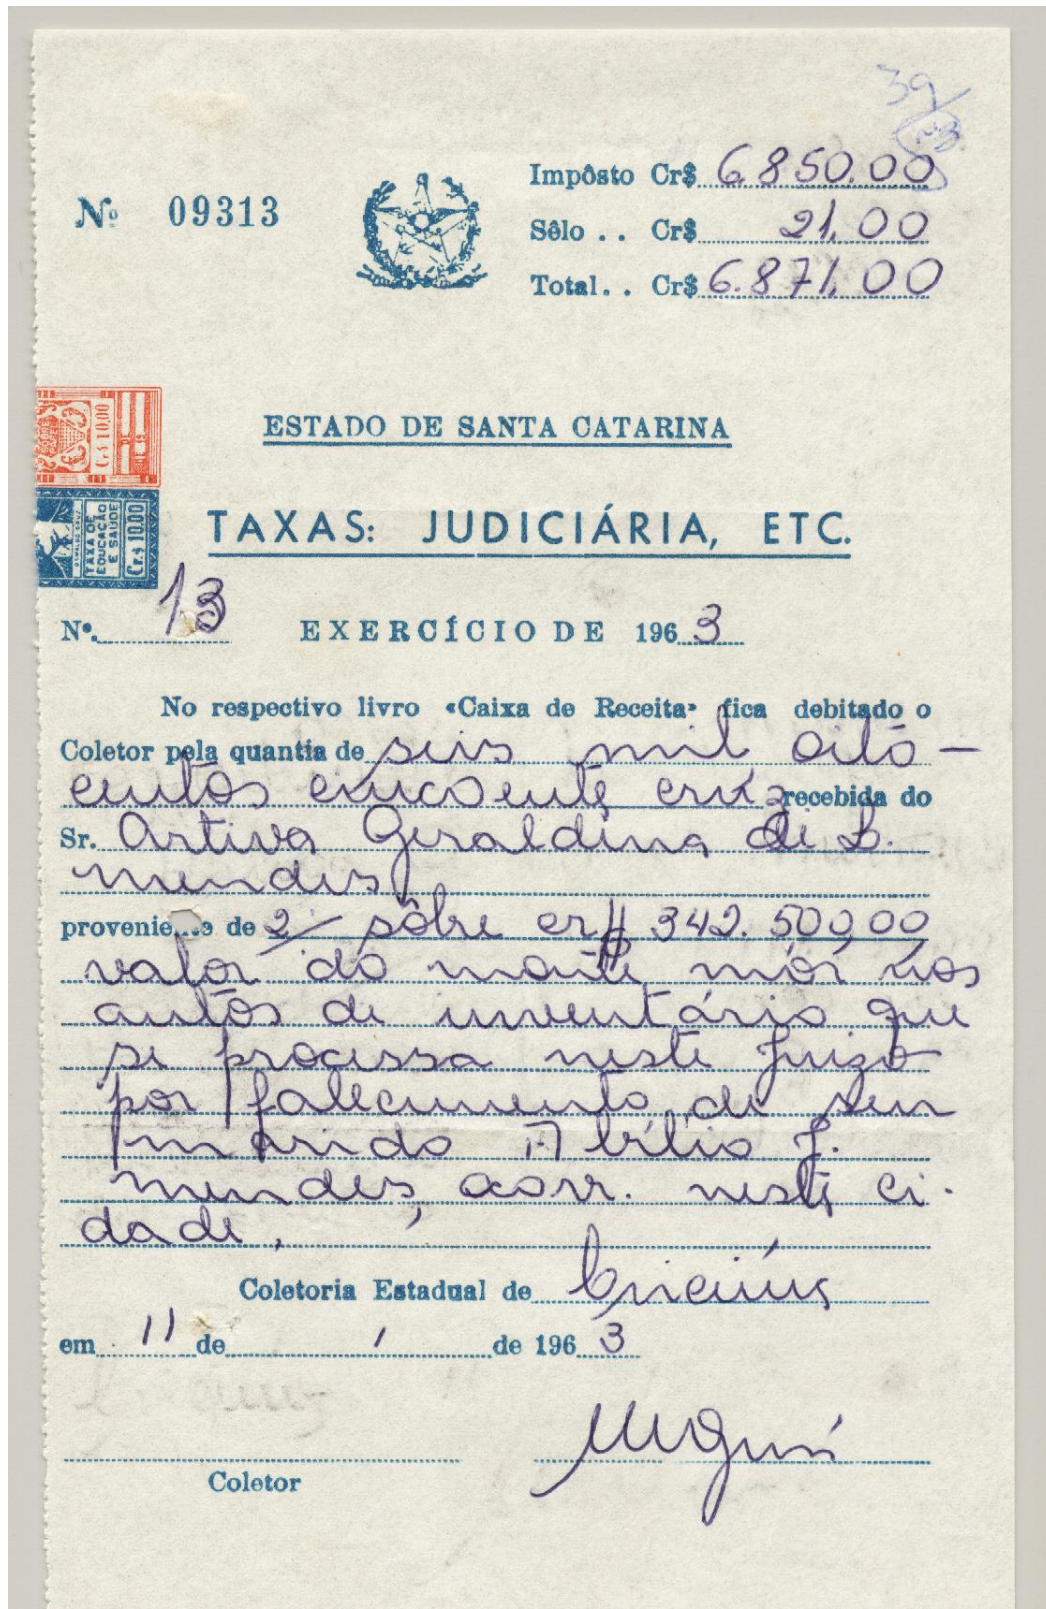 39
Nº 09313
Impôsto Cr$ 6.850.00
Sêlo . . Cr$ 21,00
Total. . Cr$ 6.871,00
ESTADO DE SANTA CATARINA
Cr.$ 10,00
TAXA DE
EDUCAÇÃO
E SAUDE
Cr.$ 10,00
TAXAS: JUDICIÁRIA, ETC.
Nº. 13 EXERCÍCIO DE 1963
No respectivo livro «Caixa de Receita» fica debitado o
Coletor pela quantia de seis mil oito-
centos cincoente cruz recebida do
Sr. Artiva Geraldina de L.
mendes
provenie...e de 2/ sôbre cr$ 342.500,00
valor do monte mór nos
autos de inventário que
se processa neste juizo
por falecimento de seu
marido Abílio J.
mendes, ocorr. neste ci-
dade,
Coletoria Estadual de Criciúma
em 11 de 1 de 1963
Coletor